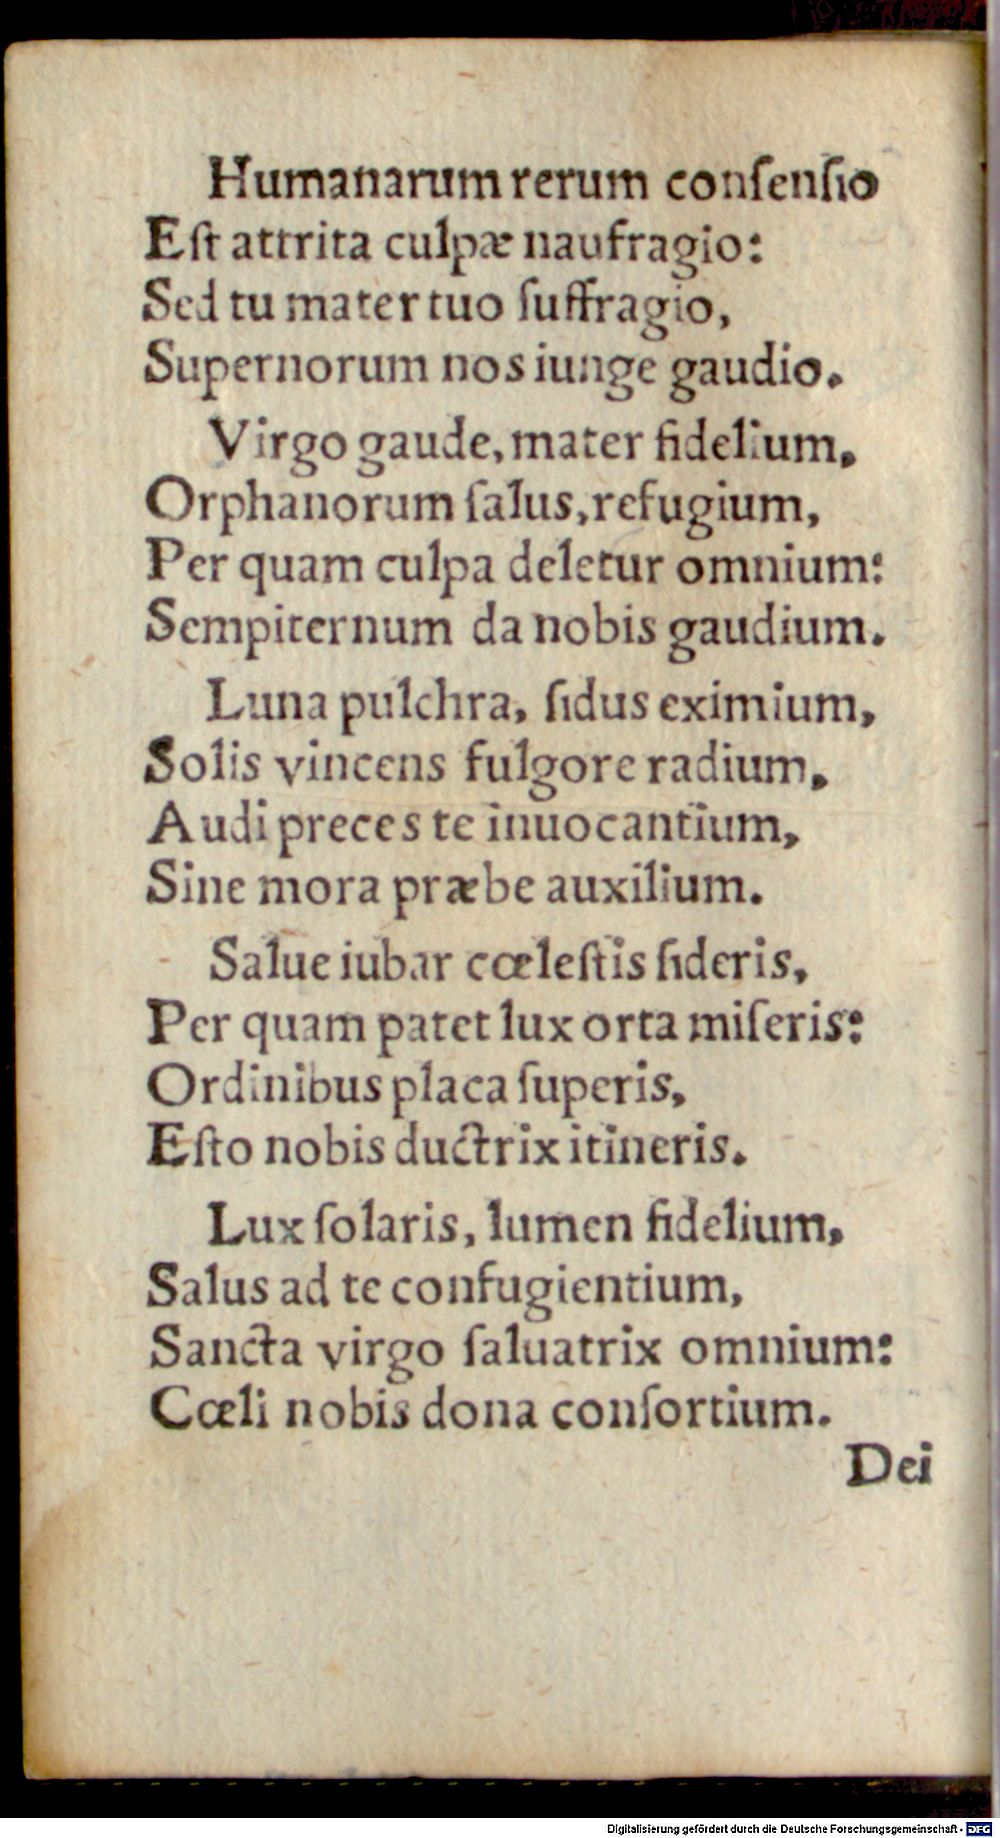 Humanarum rerum conſenſio
Eſt attrita culpæ naufragio:
Sed tu mater tuo ſuffragio,
Supernorum nos iunge gaudio.
Virgo gaude, mater fidelium,
Orphanorum ſalus, refugium,
Per quam culpa deletur omnium:
Sempiternum da nobis gaudium.
Luna pulchra, ſidus eximium,
Solis vincens fulgore radium,
Audi preces te inuocantium,
Sine mora præbe auxilium.
Salue iubar cœleſtis ſideris,
Per quam patet lux orta miſeris:
Ordinibus placa ſuperis,
Eſto nobis ductrix itineris.
Lux ſolaris, lumen fidelium,
Salus ad te confugientium,
Sancta virgo ſaluatrix omnium:
Cœli nobis dona conſortium.
Dei
Digitalisierung gefördert durch die Deutsche Forschungsgemeinschaft - DFG